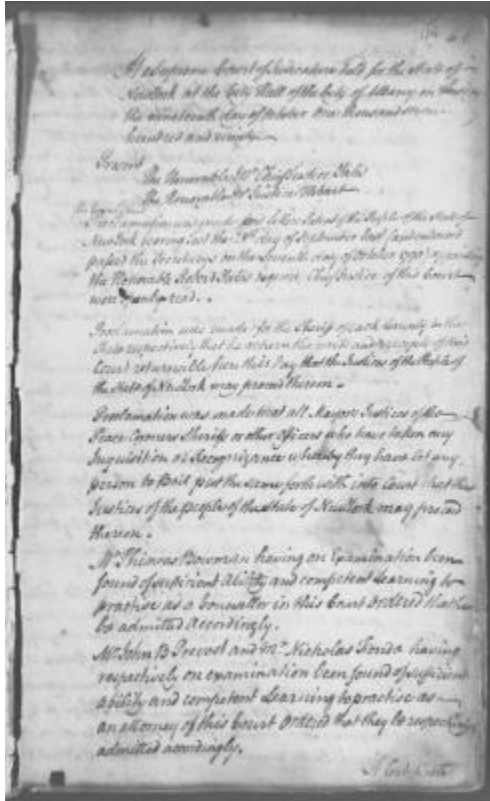 At a Supreme Court of Judicature held for the State of
New York at the City Hall of the City of Albany on
the nineteenth day of October One thousand seven
hundred and ninety
Present
The Honorable Mr Chief Justice Yates
The Honorable Mr Justice Hobart
Proclamation was made and letters Patent of the People of the State of
New York bearing test the 28th day of September last (and
passed the Secretarys on the Seventh day of October 1790)
the Honorable Robert Yates Esquire Chief Justice of this Court
were read.
Proclamation was made for the Sheriff of each County in the
State respectively that he return the writs and precepts of this
Court returnable here this day that the Justices of the People of
the State of New York may proceed thereon.
Proclamation was made that all Mayors Justices of the
Peace Coroners Sheriffs or other officers who have taken any
Inquisition or Recognizance whereby they have let any
person to Bail put the same forthwith into Court that the
Justices of the people of the State of New York may proceed
thereon.
Mr Thomas Bowman having on Examination been
found of sufficient ability and competent Learning to
practise as a Counsellor in this Court Ordered that he
be admitted Accordingly.
Mr John B Prevost and Mr Nicholas Fonda having
respectively on examination been found of sufficient
ability and competent Learning to practise as
an attorney of this Court Ordered that they be respectively
admitted accordingly.
A Certificate